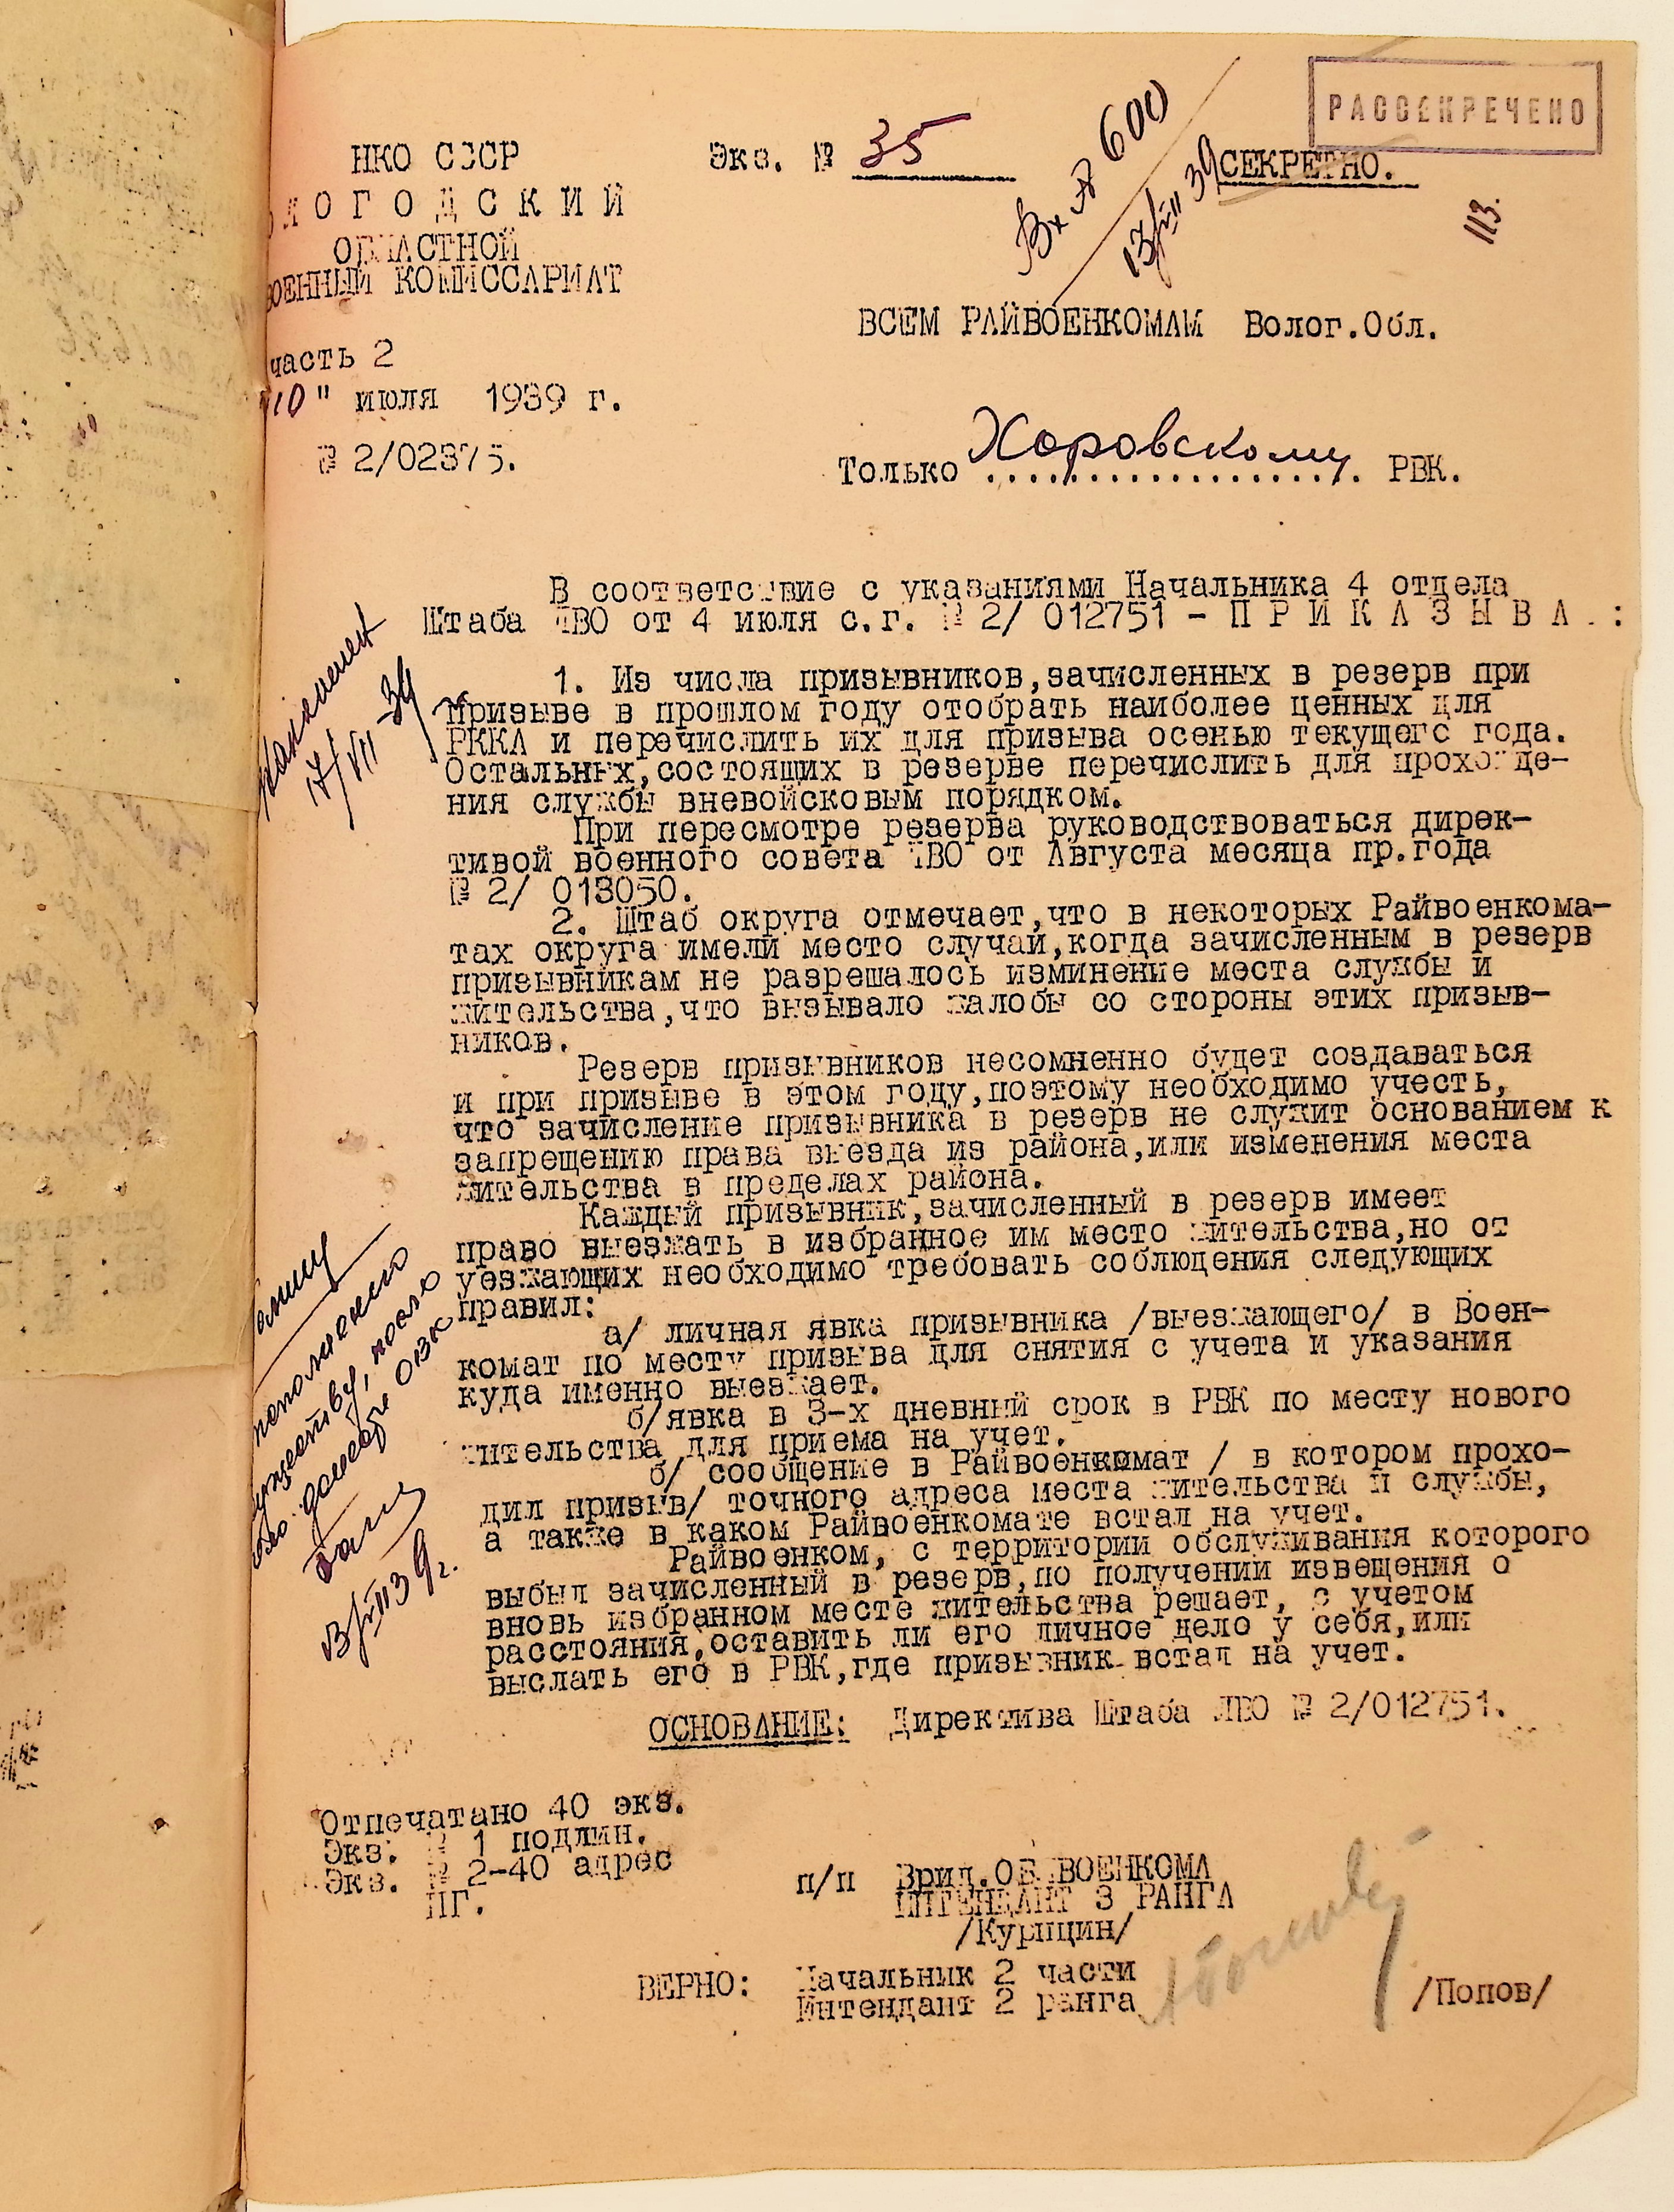 РАССЕКРЕЧЕНО
НКО СССР
Экз. № 35
СЕКРЕТНО.
Вх № 600
13/VII 39
113.
ЛОГОДСКИЙ
ОБЛАСТНОЙ
ВОЕННЫЙ КОМИССАРИАТ
ВСЕМ РАЙВОЕНКОМАМ Волог.Обл.
часть 2
10" июля 1939 г.
№ 2/02375.
Только Харовскому РВК.
В соответствие с указаниями Начальника 4 отдела
Штаба ЛВО от 4 июля с.г. № 2/ 012751 - П Р И К А З Ы В А :
1. Из числа призывников,зачисленных в резерв при
призыве в прошлом году отобрать наиболее ценных для
РККА и перечислить их для призыва осенью текущего года.
Остальных,состоящих в резерве перечислить для прохожде-
ния службы вневойсковым порядком.
При пересмотре резерва руководствоваться дирек-
тивой военного совета ЛВО от Августа месяца пр.года
№ 2/ 013050.
2. Штаб округа отмечает,что в некоторых Райвоенкома-
тах округа имели место случаи,когда зачисленным в резерв
призывникам не разрешалось изминение места службы и
жительства,что вызывало жалобы со стороны этих призыв-
ников.
Резерв призывников несомненно будет создаваться
и при призыве в этом году,поэтому необходимо учесть,
что зачисление призывника в резерв не служит основанием к
запрещению права выезда из района,или изменения места
жительства в пределах района.
Каждый призывник,зачисленный в резерв имеет
право выезжать в избранное им место жительства,но от
уезжающих необходимо требовать соблюдения следующих
правил:
а/ личная явка призывника /выезжающего/ в Воен-
комат по месту призыва для снятия с учета и указания
куда именно выезжает.
б/явка в 3-х дневный срок в РВК по месту нового
жительства для приема на учет.
б/ сообщение в Райвоенкомат / в котором прохо-
дил призыв/ точного адреса места жительства и службы,
а также в каком Райвоенкомате встал на учет.
Райвоенком, с территории обслуживания которого
выбыл зачисленный в резерв,по получении извещения о
вновь избранном месте жительства решает, с учетом
расстояния,оставить ли его личное дело у себя,или
выслать его в РВК,где призывник встал на учет.
ОСНОВАНИЕ: Директива Штаба ЛВО № 2/012751.
17/VII-39
13/VII 39г.
Отпечатано 40 экз.
Экз. № 1 подлин.
Экз. № 2-40 адрес
ПГ.
п/п Врид.ОБ.ВОЕНКОМА
ИНТЕНДАНТ 3 РАНГА
/Курицин/
ВЕРНО: Начальник 2 части
Интендант 2 ранга
/Попов/